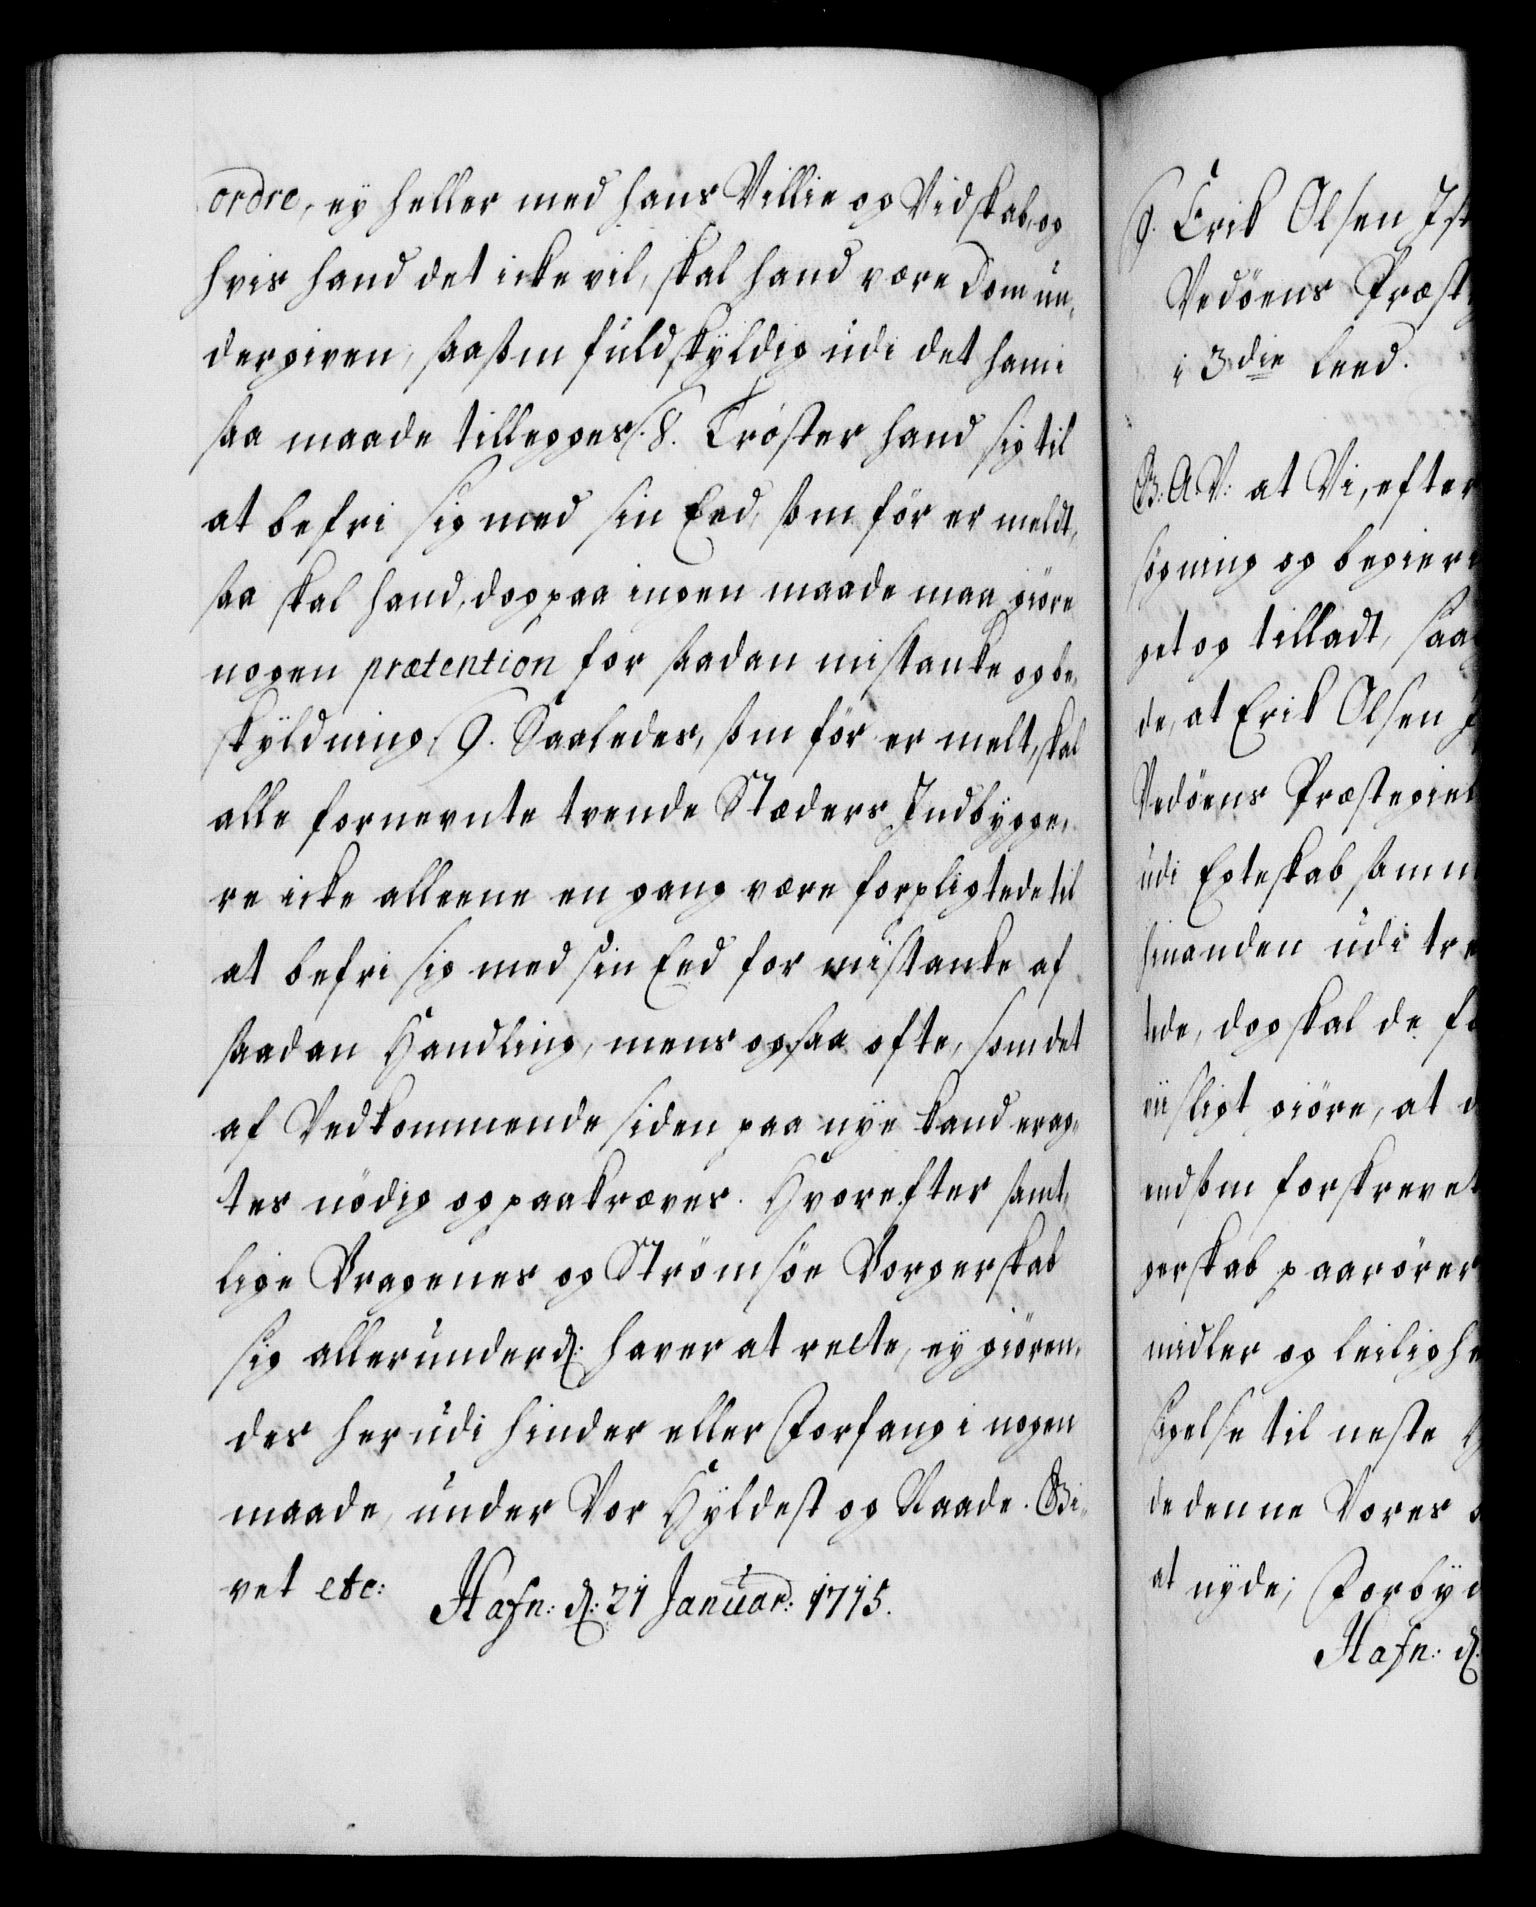 ordre, ey heller med hans Villie og Vidskab, og
hvis hand det icke vil, skal hand være Dom un-
dergiven, saasom fuldskyldig udi det ham i
saa maade tillegges. 8. Trøster hand sig til
at befri sig med sin Eed, som før er meldt,
saa skal hand, dog paa ingen maade maa giøre
nogen prætention for saadan mistanke og be-
skyldning. 9. Saaledes, som før er melt, skal
alle fornevnte tvende Stæders Indbygge-
re icke alleene en gang være forpligtede til
at befri sig med sin Eed for mistanke af
saadan Handling, mens ogsaa ofte, som det
af Vedkommende siden paa nye kand erag-
tes nödig og paakræves. Hvorefter samt-
lige Bragenes og Strömsöe Borgerskab
sig allerunderd: haver at rette, ey giören-
des herudi hinder eller Forfang i nogen
maade, under Vor Hyldest og Naade. Gi-
vet etc:
Hafn: d: 21 Januar: 1715.
9. Erik Olsen
Vedöens Præst
i 3die Leed.
G: A: V: at Vi, efter
søgning og begier
get og tilladt, saa
de, at Erik Olsen
Vedöens Præstegiel
udi Egteskab samm
hinanden udi tre
tede, dog skal de
sligt giöre, at
endsom forskrevet
gerskab paarörer
midler og leilighe
sigelse til neste
de denne Vores
at nyde; Forbyd
Hafn: d: